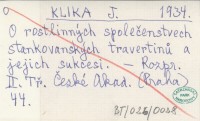 KLIKA J. 1934.
O rostlinných společenstvech
stankovanských travertinů a
jejich sukcesi. – Rozpr.
II. Tř. České Akad. (Praha)
44.
BT/026/0048